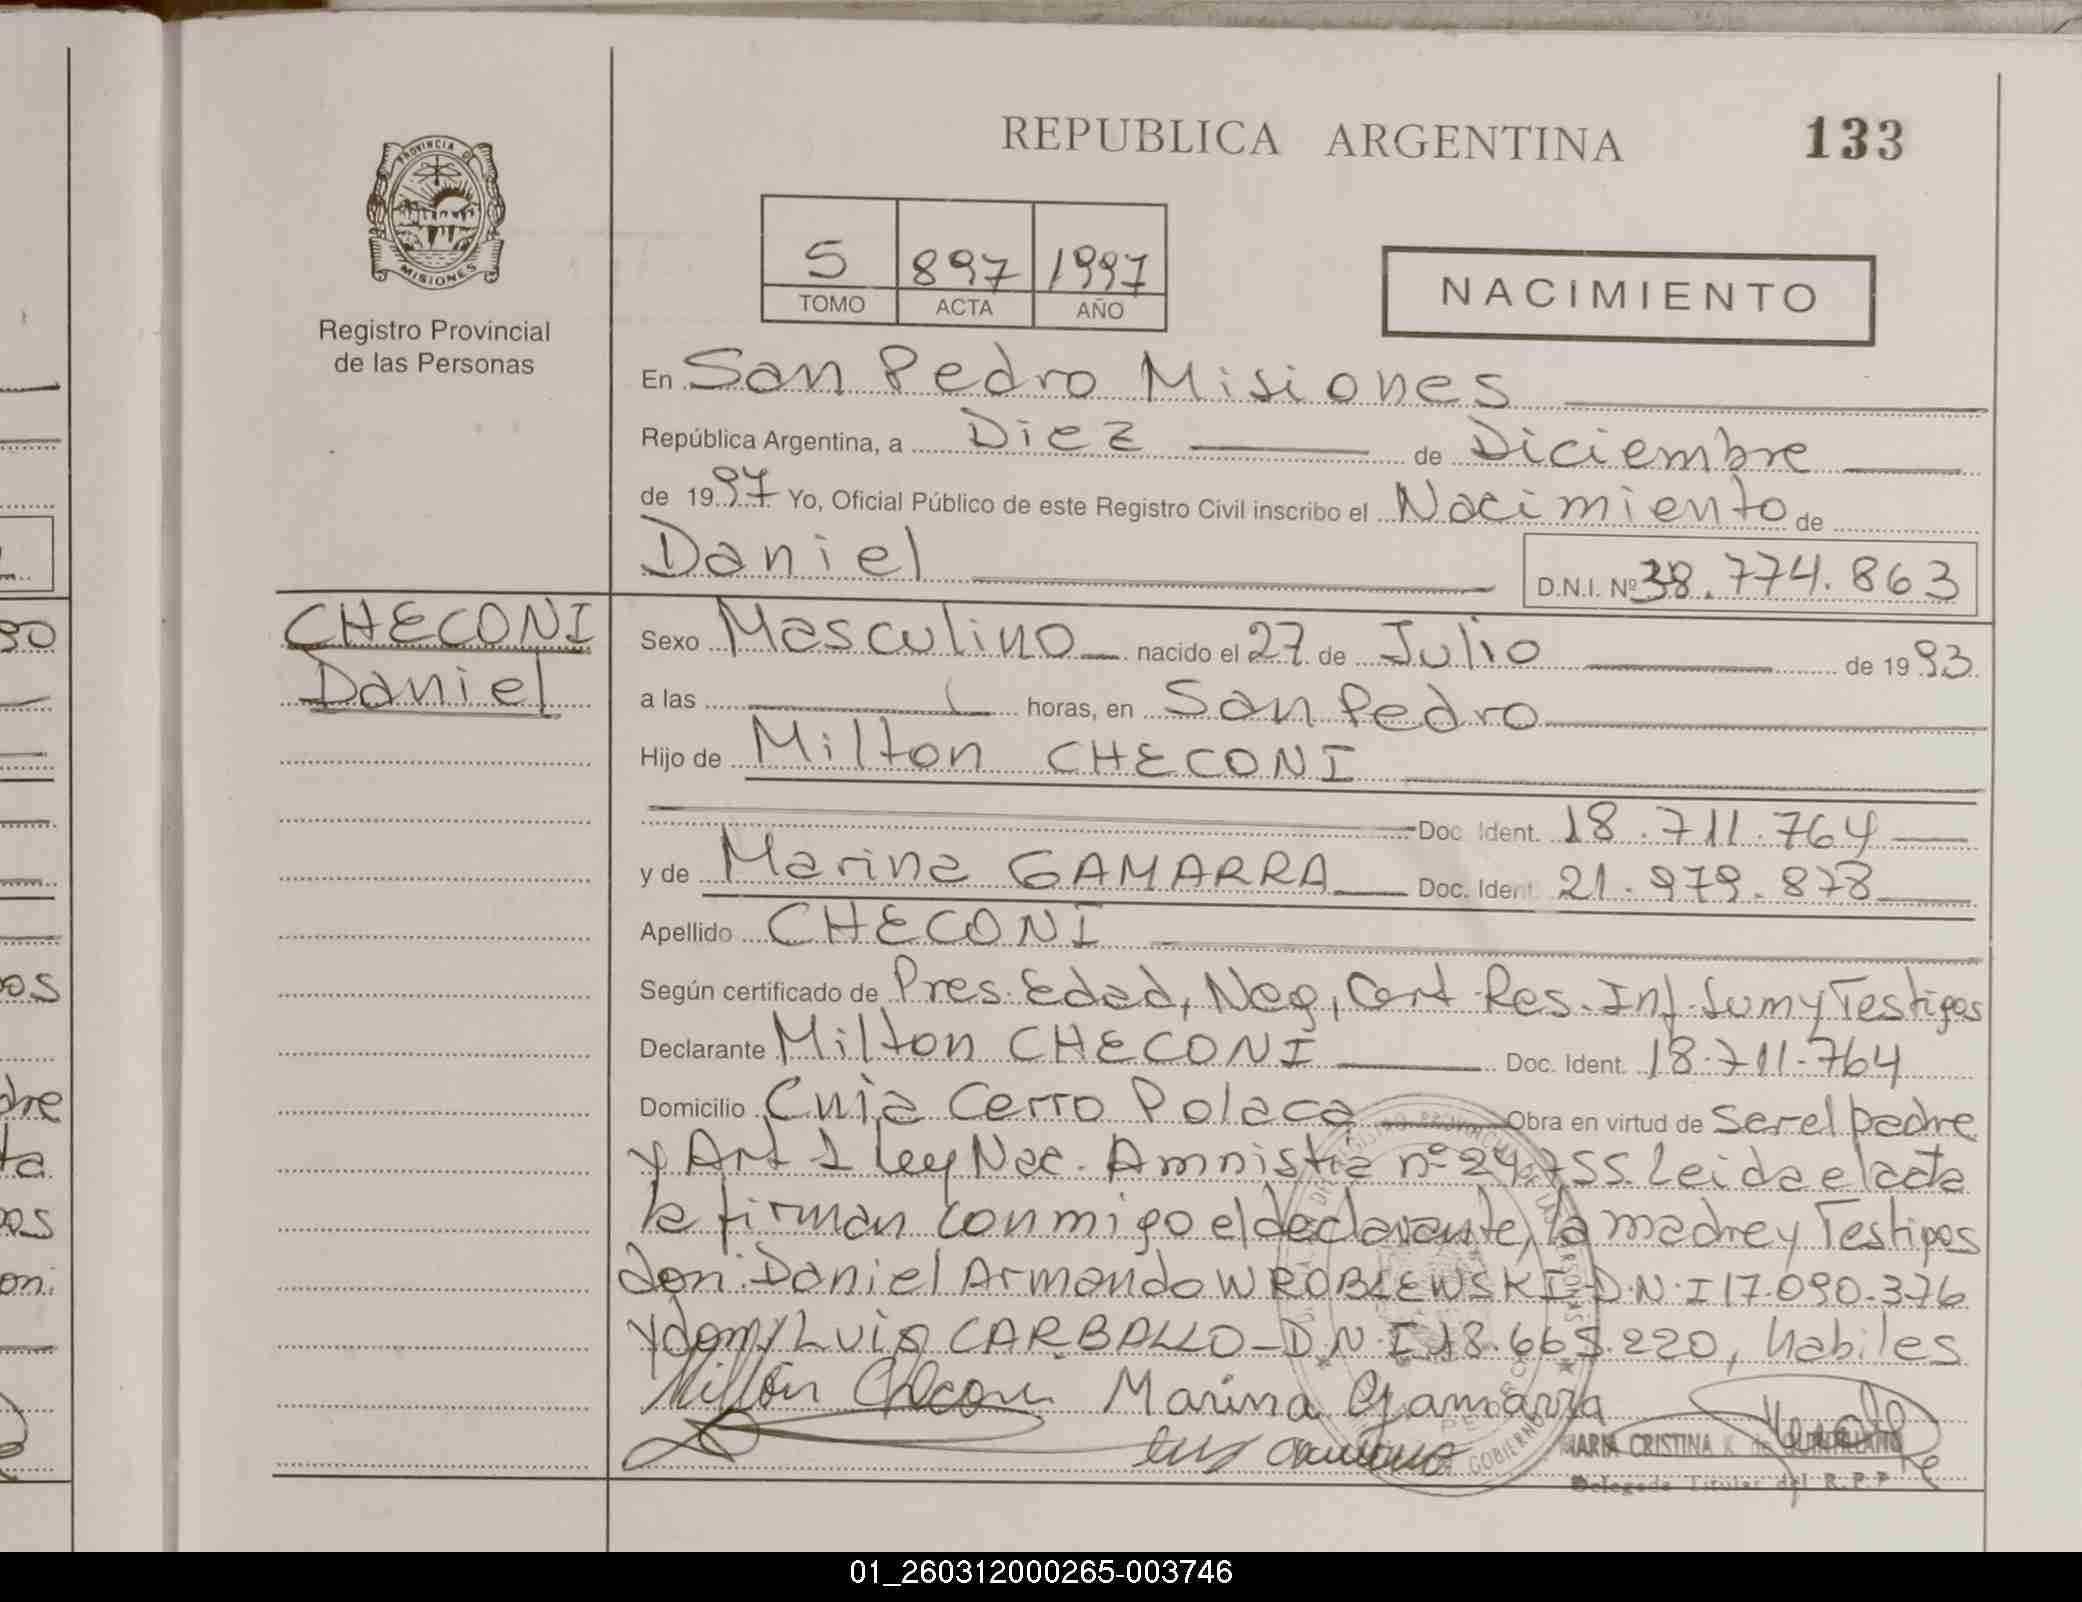 REPUBLICA ARGENTINA
133
PROVINCIA DE
MISIONES
Registro Provincial
de las Personas
5 897 1997
TOMO ACTA AÑO
NACIMIENTO
En San Pedro Misiones
República Argentina, a Diez de Diciembre
de 1997 Yo, Oficial Público de este Registro Civil inscribo el Nacimiento de
Daniel D.N.I. Nº 38.774.863
CHECONI
Daniel
Sexo Masculino nacido el 27 de Julio de 1993
a las horas, en San Pedro
Hijo de Milton CHECONI
Doc. Ident. 18.711.764
y de Marina GAMARRA Doc. Ident. 21.979.878
Apellido CHECONI
Según certificado de Pres. Edad, Neg, Cert. Res. Inf. Sum y Testigos
Declarante Milton CHECONI Doc. Ident. 18.711.764
Domicilio Cuia Cerro Polaca Obra en virtud de ser el padre
y Art 1 Ley Nac. Amnistia nº 24.755. Leida el acta
la firman conmigo el declarante, la madre y Testigos
don. Daniel Armando WROBLEWSKI D.N.I 17.090.376
y dom Luis CARBALLO - D.N.I 18.665.220, habiles
Milton Checoni Marina Gamarra
MARIA CRISTINA K. de
Delegada Titular del R.P.P
01_260312000265-003746